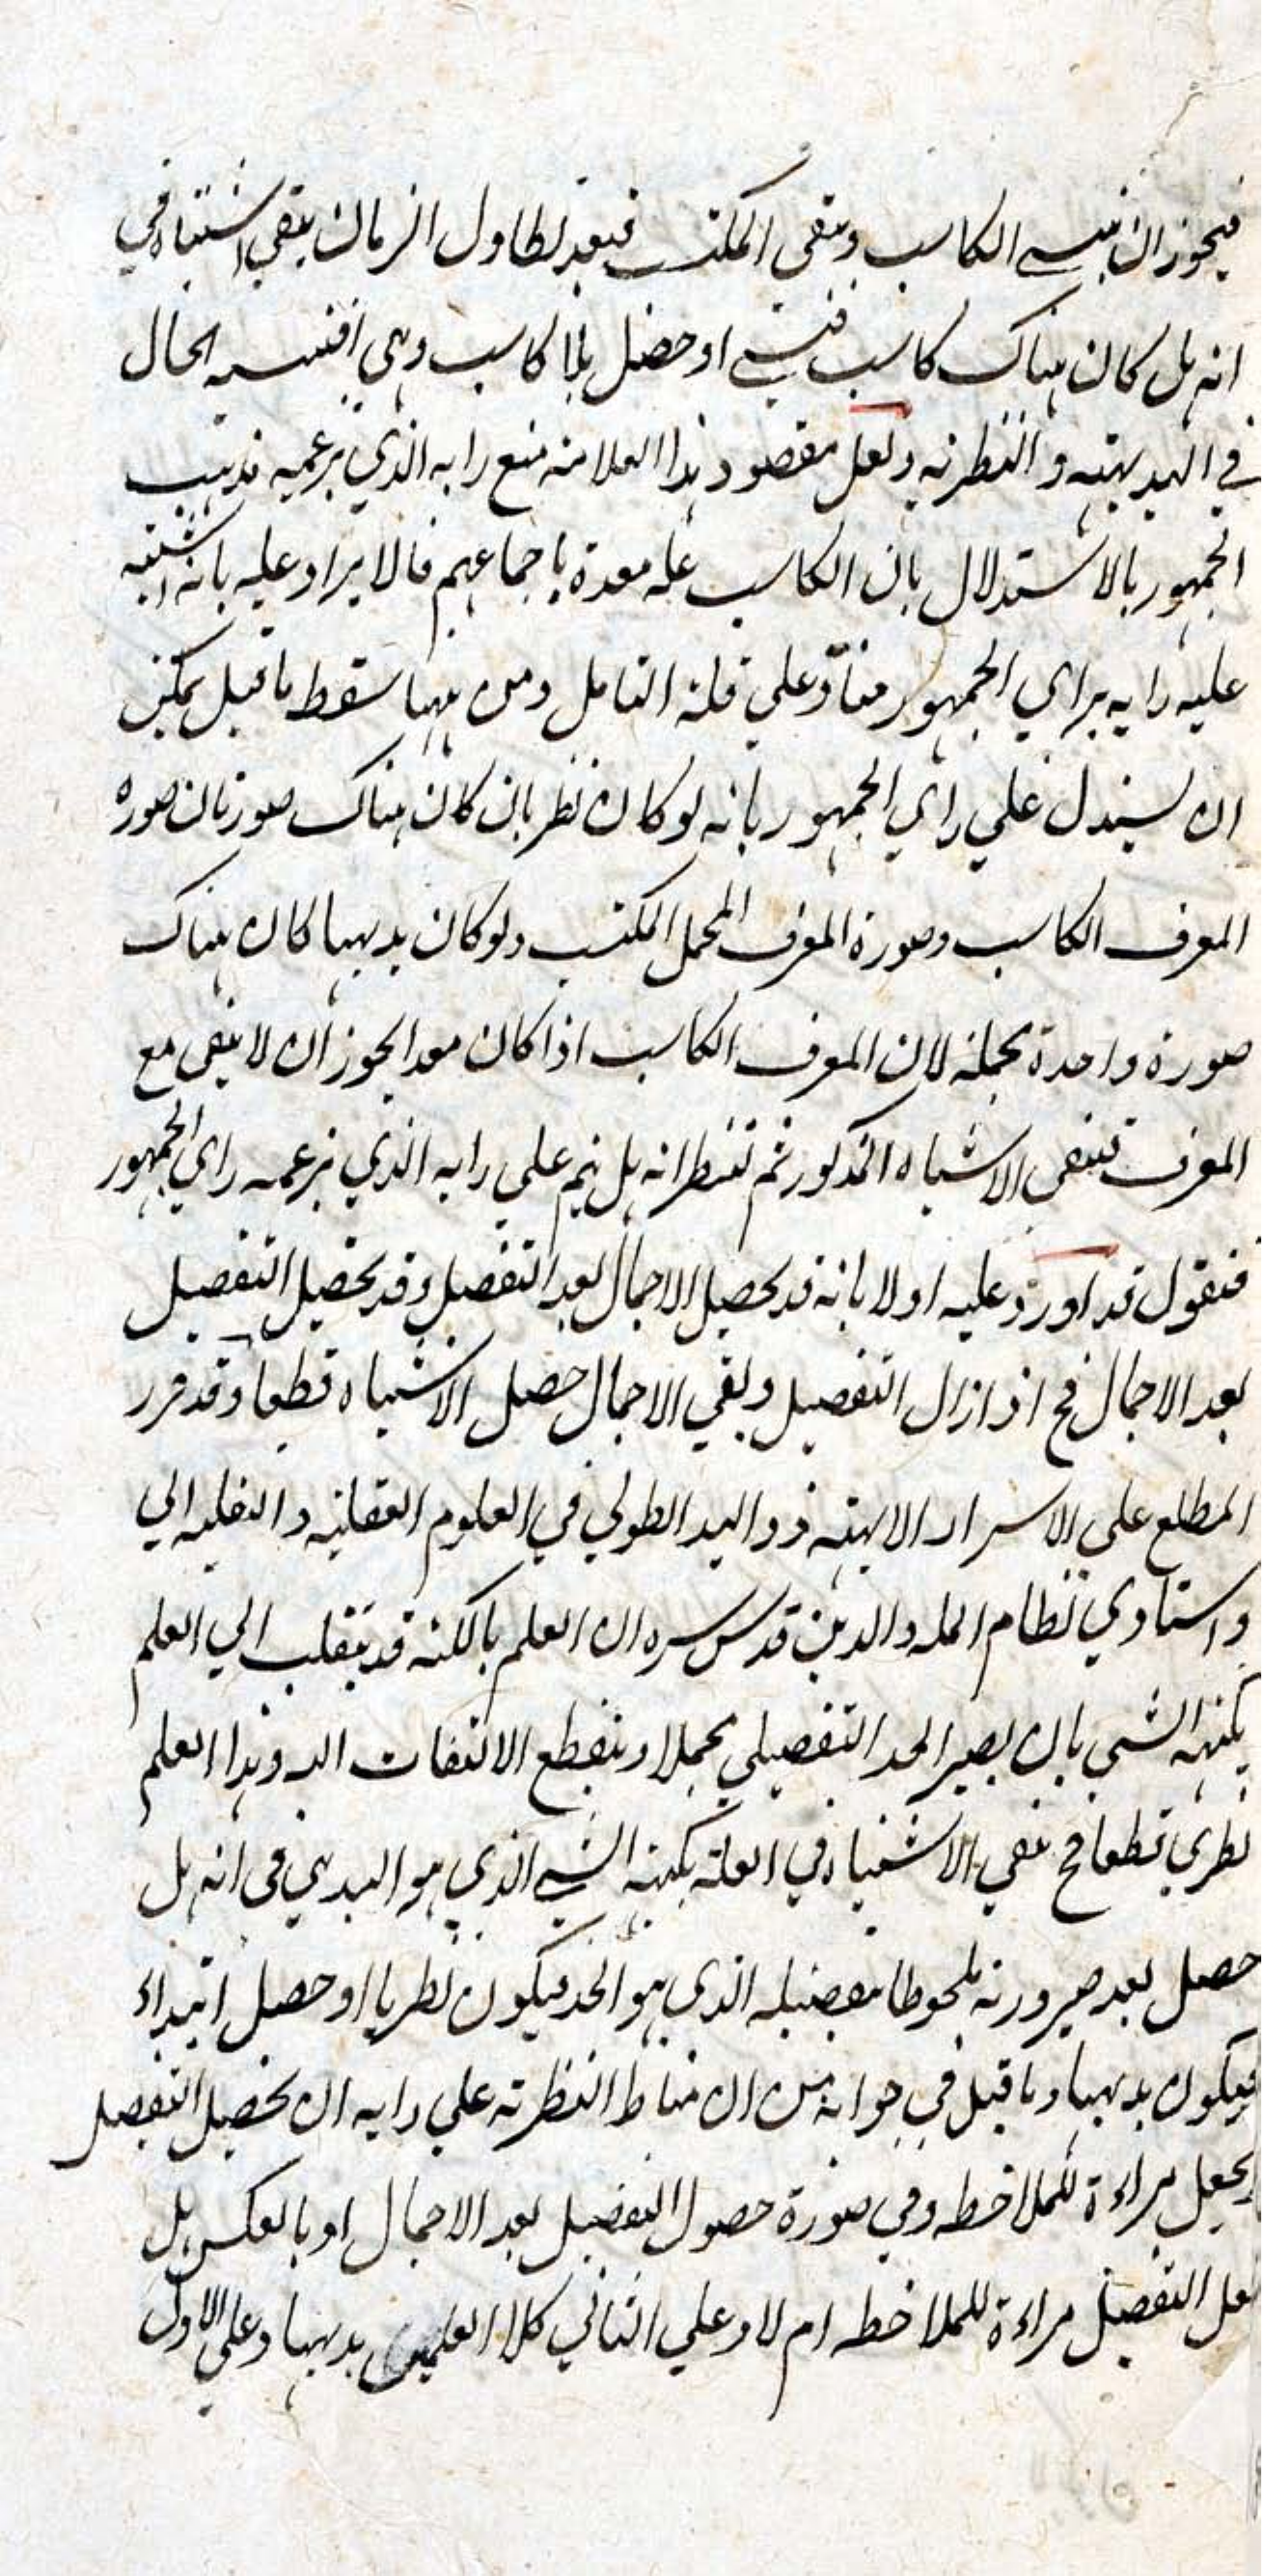 فيجوز ان ينسى الكاسب ويبقى المكتسب فبعد تطاول الزمان يبقى اشتباه في
انه هل كان هناك كاسب فنسي او حصل بلا كاسب وهي اقتسمه الحال
في البديهية والنظرية ولعل مقصود هذا العلامة منع رايه الذي يزعمه مذهب
الجمهور بالاستدلال بان الكاسب علة معدة باجماعهم فالايراد عليه بانه اشتبه
عليه رايه براي الجمهور مناد على قلة التامل ومن ههنا سقط ما قيل يمكن
ان يستدل على راي الجمهور بانه لو كان نظريا كان هناك صورتان صورة
المعرف الكاسب وصورة المعرف المجمل المكتسب ولو كان بديهيا كان هناك
صورة واحدة مجملة لان المعرف الكاسب اذا كان معدا يجوز ان لا يبقى مع
المعرف فيبقى الاشتباه المذكور ثم ننظر انه هل يتم على رايه الذي يزعمه راي الجمهور
فنقول قد اورد عليه اولا بانه قد يحصل الاجمال بعد التفصيل وقد يحصل التفصيل
بعد الاجمال فح اذا زال التفصيل وبقي الاجمال حصل الاشتباه قطعا وقد قرر
المطلع على الاسرار الالهية ذو اليد الطولى في العلوم العقلية والنقلية ابي
واستاذي نظام الملة والدين قدس سره ان العلم بالكنه قد ينقلب الى العلم
بكنه الشي بان يصير الحد التفصيلي مجملا وينقطع الالتفات اليه وهذا العلم
نظري قطعا فح يبقى الاشتباه في العلم بكنه الشي الذي هو البديهي في انه هل
حصل بعد صيرورته ملحوظا بتفصيله الذي هو الحد فيكون نظريا او حصل ابتداء
فيكون بديهيا وما قيل في جوابه من ان مناط النظرية على رايه ان يحصل التفصيل
ويجعل مراءة للملاحظة وفي صورة حصول التفصيل بعد الاجمال او بالعكس هل
جعل التفصيل مراءة للملاحظة ام لا وعلى الثاني كلا العلمين بديهيا وعلى الاول